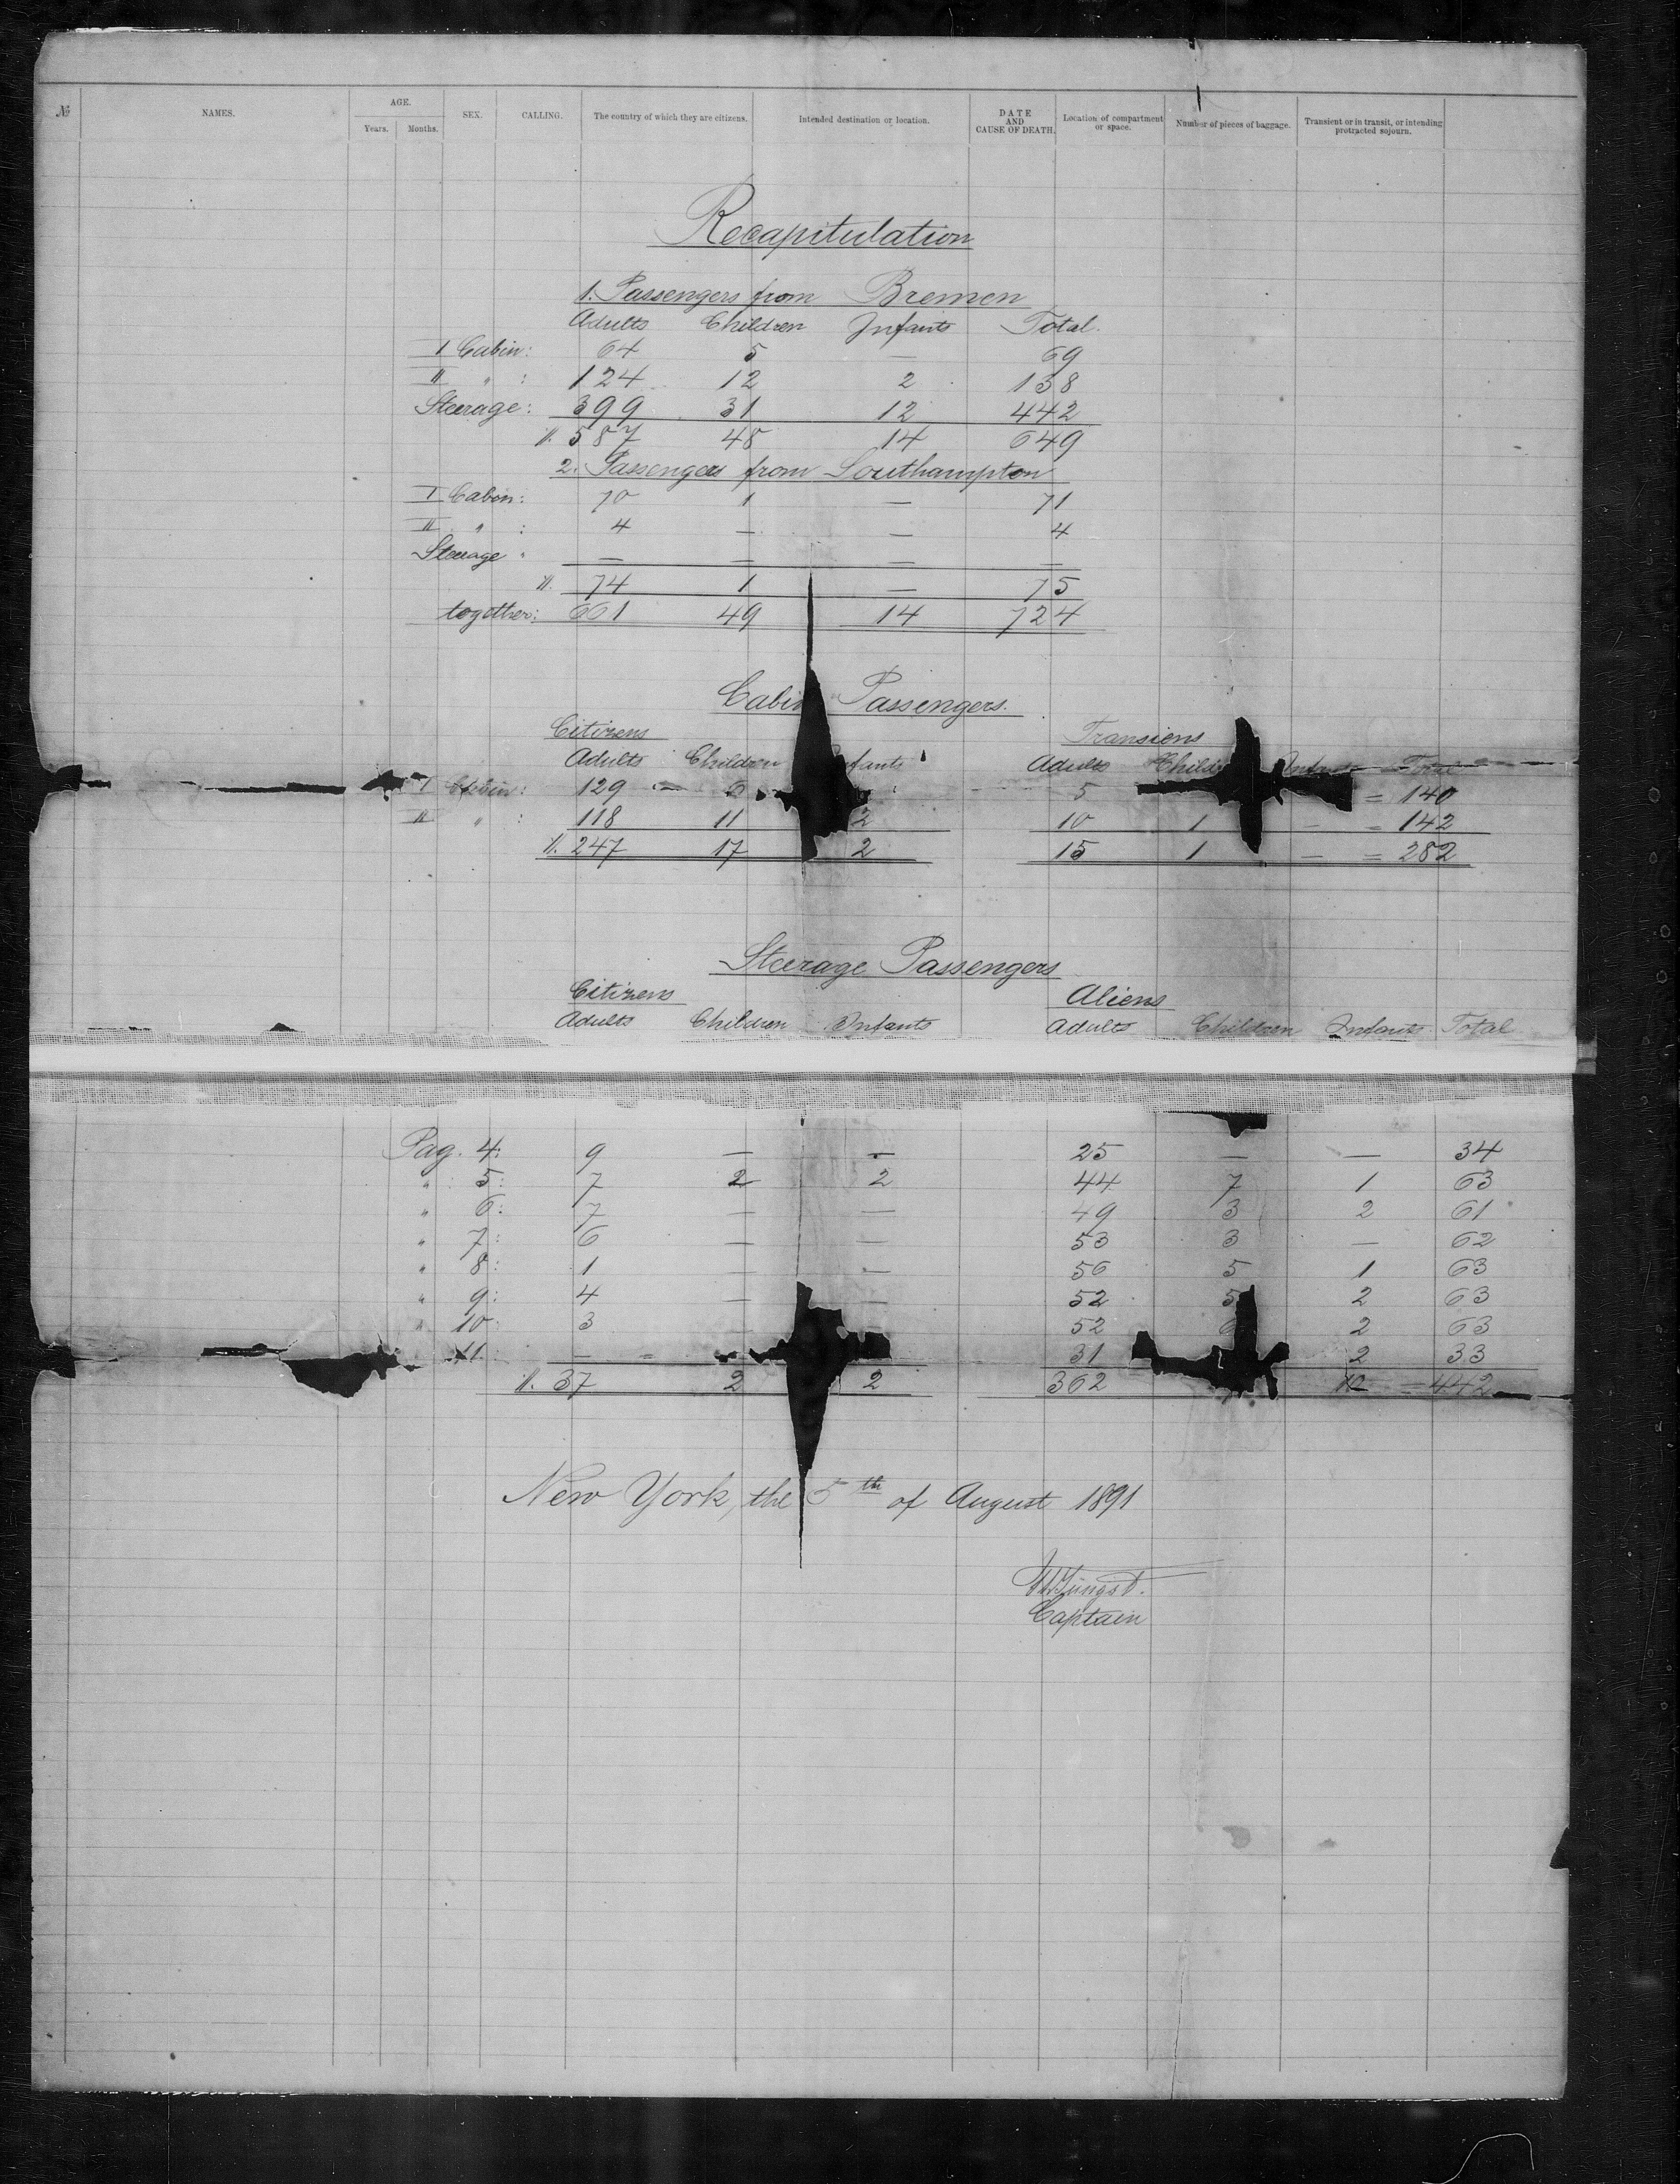 № NAMES. AGE. Years. Months. SEX. CALLING. The country of which they are citizens. Intended destination or location. DATE AND CAUSE OF DEATH. Location of compartment or space. Number of pieces of baggage. Transient or in transit, or intending protracted sojourn.
Recapitulation
1. Passengers from Bremen
Adults Children Infants Total.
I Cabin: 64 5 — 69
II " : 124 12 2 138
Steerage: 399 31 12 442
587 48 14 649
2. Passengers from Southampton
I Cabin: 70 1 — 71
II " : 4 — — 4
Steerage — — — —
74 1 — 75
together: 661 49 14 724
Cabin Passengers.
Citizens Transiens
Adults Children Infants Adults Children Total
I Cabin: 129 5 = 140
II " : 118 11 2 10 1 — = 142
247 17 2 15 1 — = 282
Steerage Passengers
Citizens Aliens
Adults Children Infants Adults Children Infants Total
Pag. 4: 9 — — 25 — — 34
" 5: 7 2 2 44 7 1 63
" 6: 7 — — 49 3 2 61
" 7: 6 — — 53 3 — 62
" 8: 1 — — 56 5 1 63
" 9: 4 — — 52 5 2 63
" 10: 3 — 52 2 63
11 — 31 2 33
37 2 2 362 10 = 442
New York, the 5th of August 1891
Captain